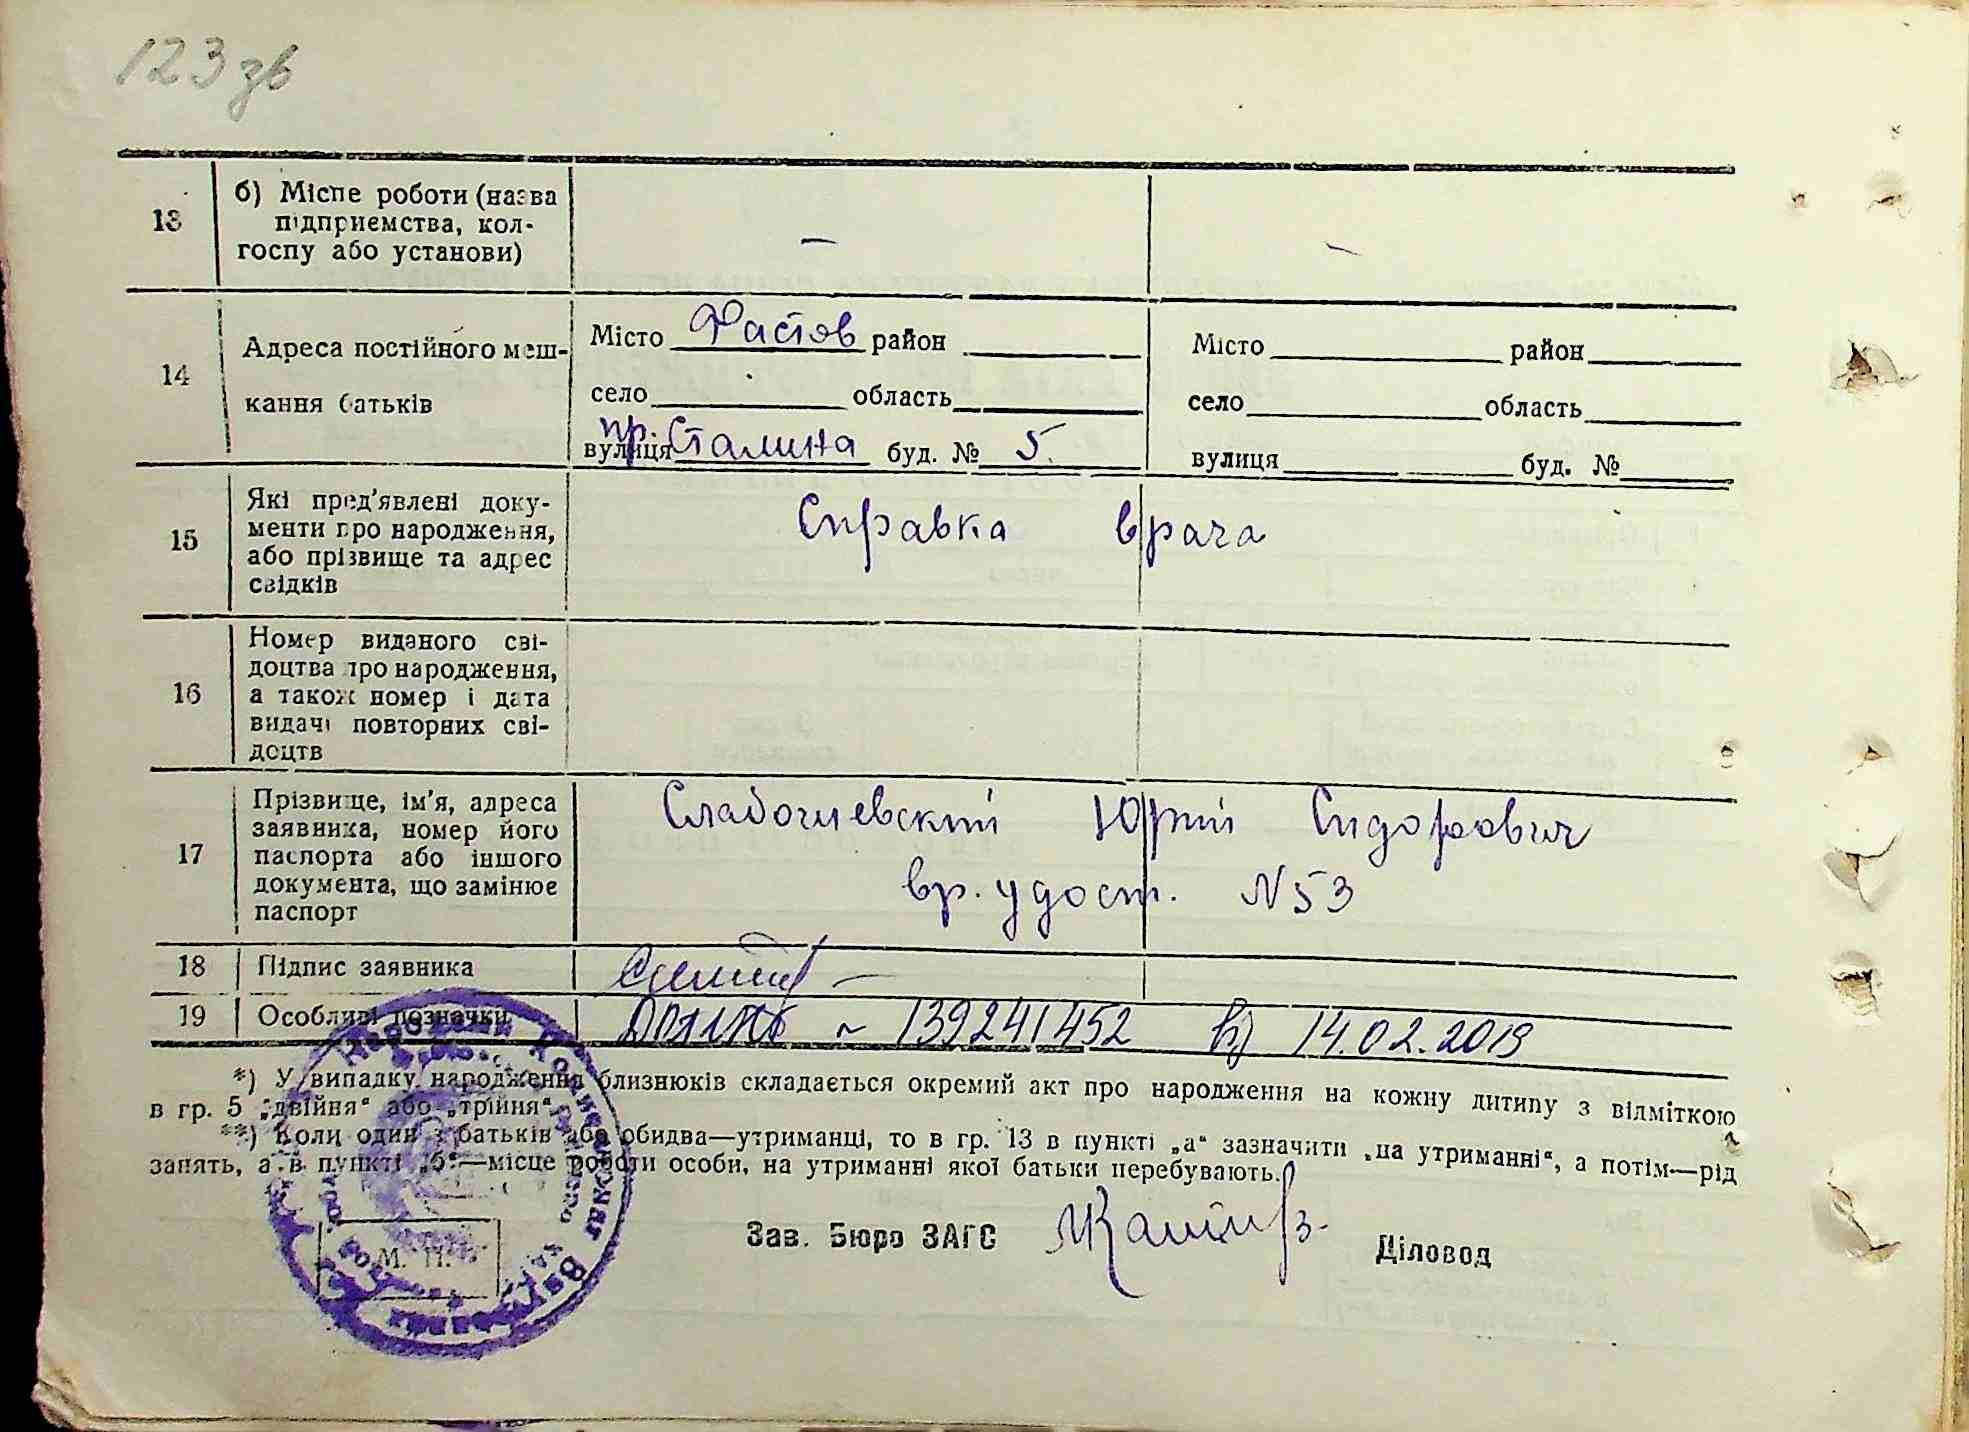 123 зв
13
б) Місце роботи (назва
підприємства, кол-
госпу або установи)
—
—
14
Адреса постійного меш-
кання батьків
Місто Фастов район
село область
вулиця пр. Сталина буд. № 5.
Місто район
село область
вулиця буд. №
15
Які пред'явлені доку-
менти про народження,
або прізвище та адрес
свідків
Справка врача
16
Номер виданого сві-
доцтва про народження,
а також номер і дата
видачі повторних сві-
доцтв
17
Прізвище, ім'я, адреса
заявника, номер його
паспорта або іншого
документа, що замінює
паспорт
Слабочиевский Юрий Сидорович
вр. удост. N 53
18 Підпис заявника
19 Особливі позначки
139241452 14.02.2019
*) У випадку народження близнюків складається окремий акт про народження на кожну дитину з відміткою
в гр. 5 „двійня“ або „трійня“.
**) Коли один з батьків або обидва—утриманці, то в гр. 13 в пункті „а“ зазначити „на утриманні“, а потім—рід
занять, а в пункті „б“—місце роботи особи, на утриманні якої батьки перебувають.
М. П.
Зав. Бюро ЗАГС
Діловод